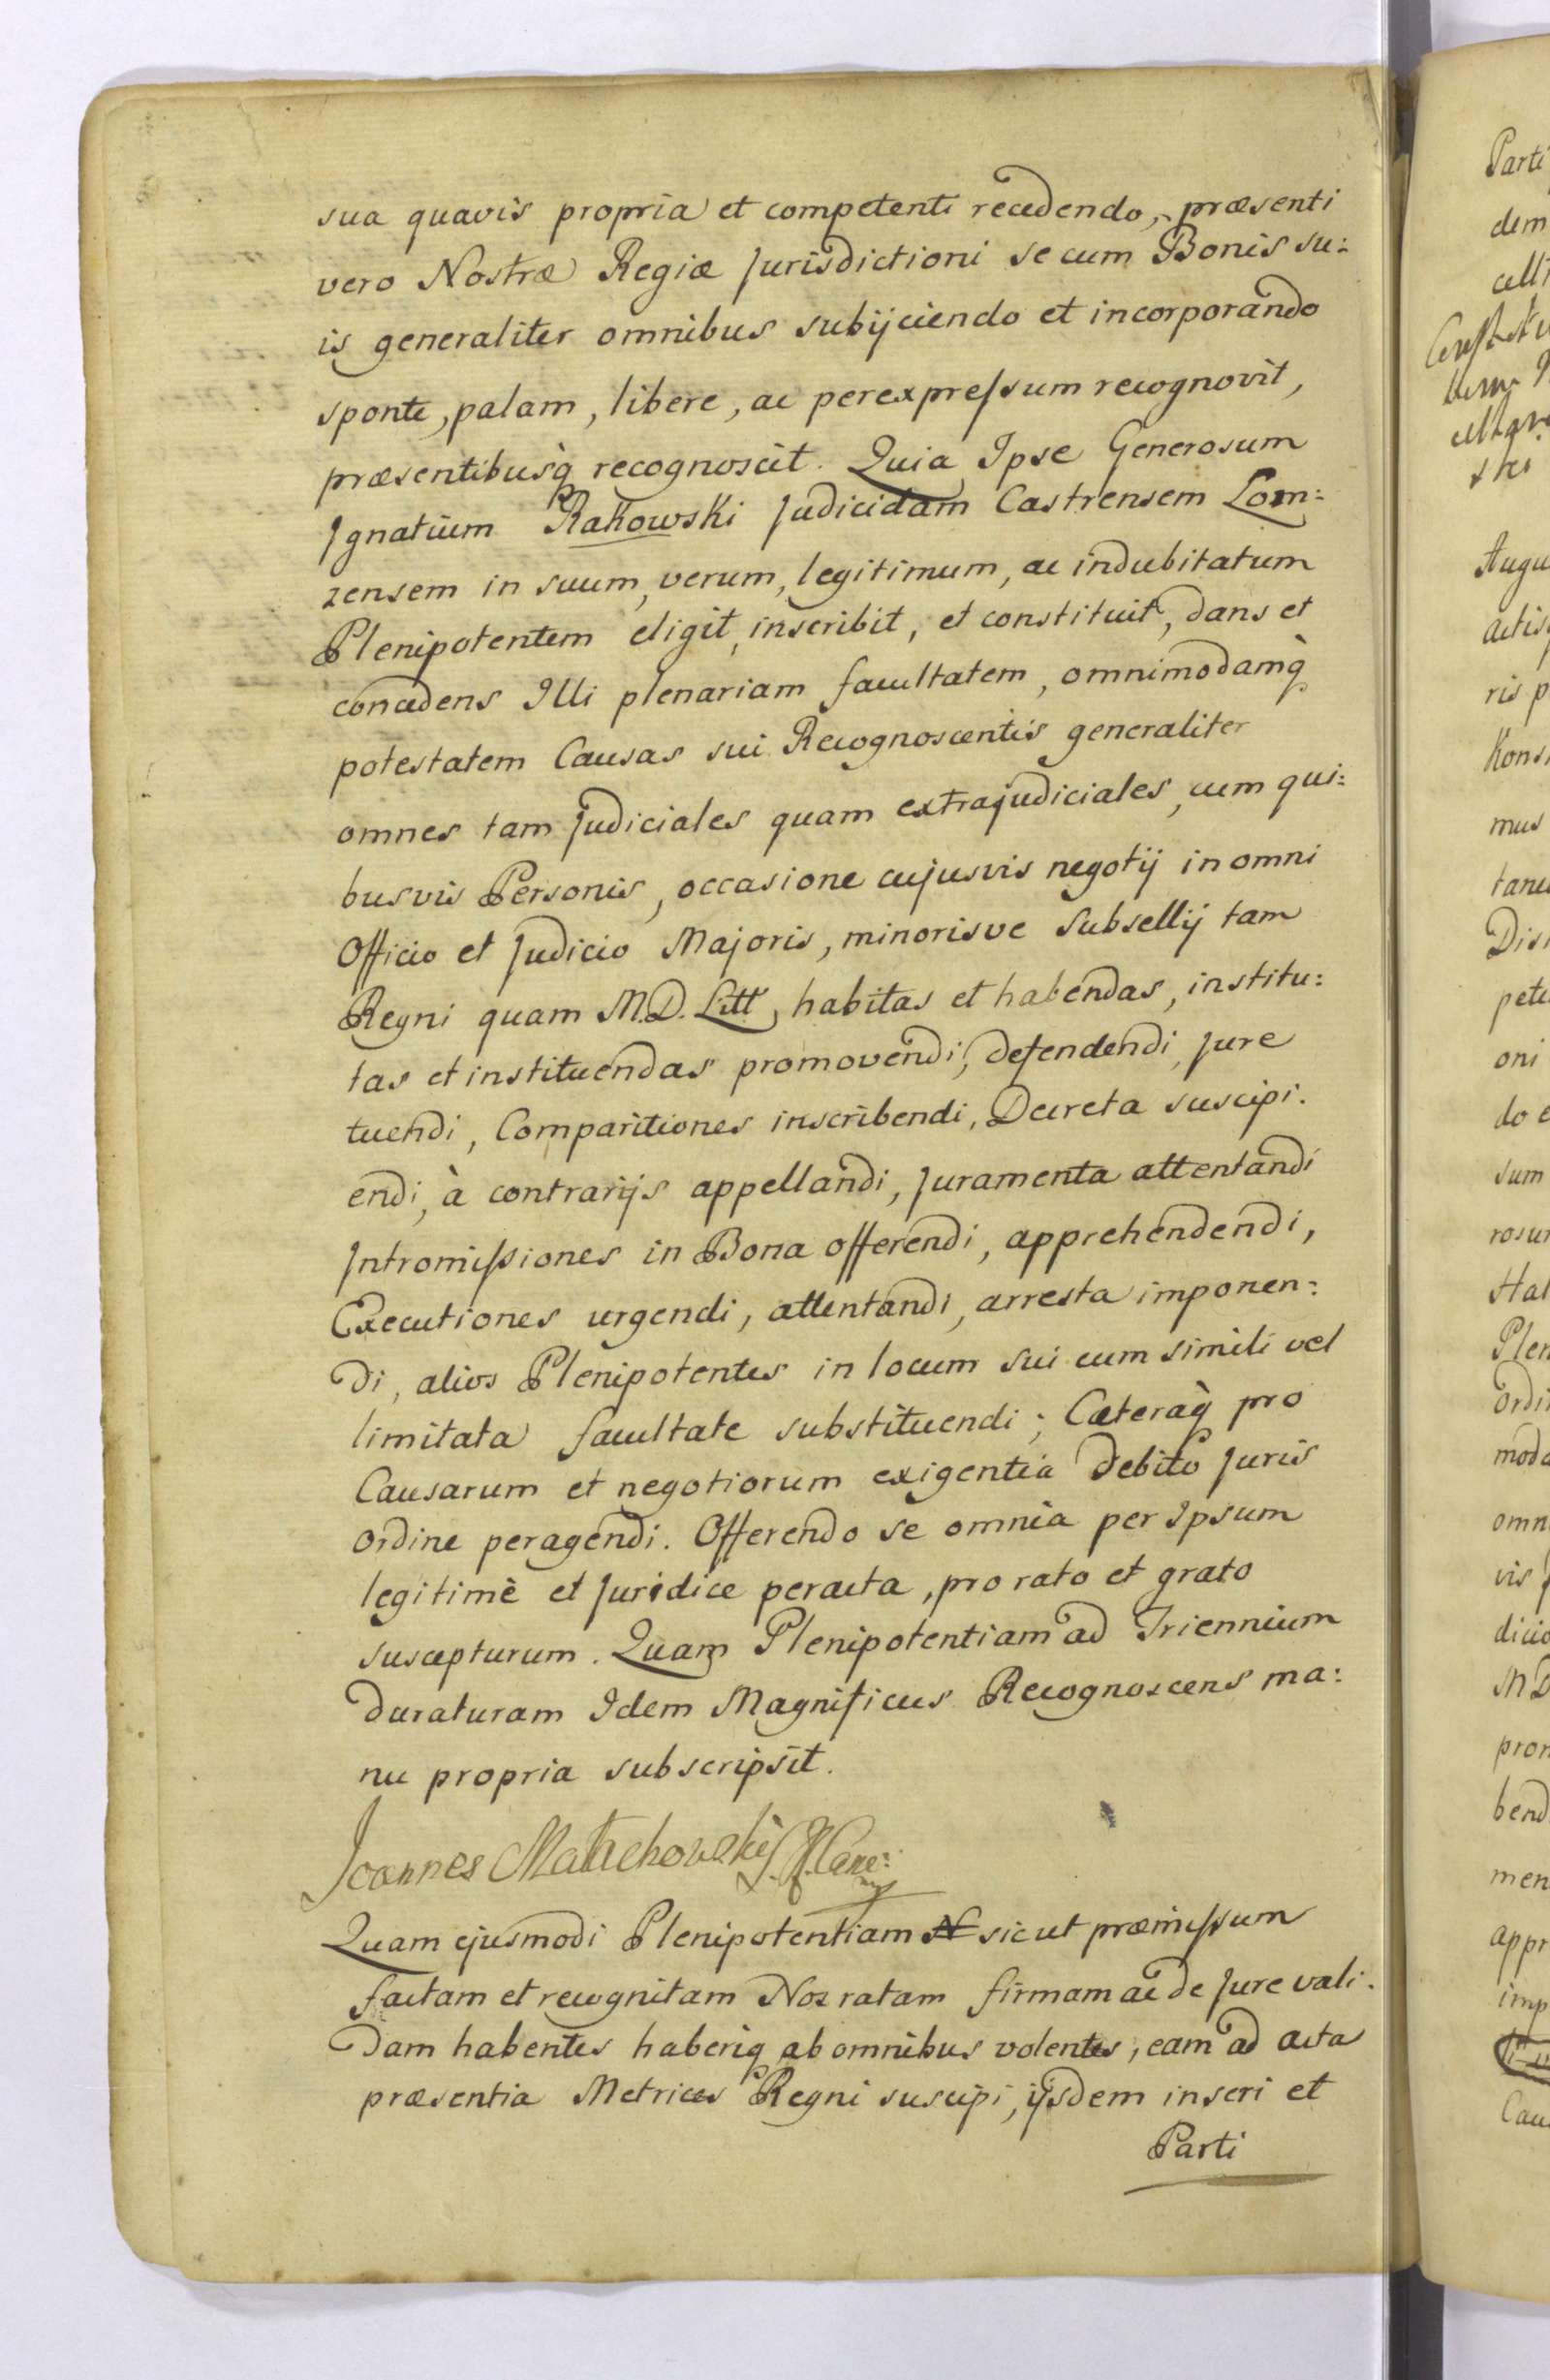 sua quavis propria et competenti recedendo, præsenti
vero Nostræ Regiæ Jurisdictioni se cum Bonis su:
is generaliter omnibus subijciendo et incorporando
sponte, palam, libere, ac perexpressum recognovit,
præsentibusq̀ recognoscit. Quia Ipse Generosum
Ignatium Rakowski Judicidam Castrensem Lom:
zensem in suum, verum, legitimum, ac indubitatum
Plenipotentem eligit, inscribit, et constituit, dans et
concedens Illi plenariam facultatem, omnimodamq̀
potestatem Causas sui Recognoscentis generaliter
omnes tam Judiciales quam extrajudiciales, cum qui:
busvis Personis, occasione cujusvis negotij in omni
Officio et Judicio Majoris, minorisve Subsellij tam
Regni quam M.D. Litt, habitas et habendas, institu:
tas et instituendas promovendi, defendendi, Jure
tuendi, Comparitiones inscribendi, Decreta suscipi.
endi, à contrarijs appellandi, Juramenta attentandi
Intromissiones in Bona offerendi, apprehendendi,
Executiones urgendi, attentandi, arresta imponen:
di, alios Plenipotentes in locum sui cum simili vel
limitata facultate substituendi; Cæteraq̀ pro
Causarum et negotiorum exigentia debito Juris
ordine peragendi. Offerendo se omnia per Ipsum
legitimè et Juridice peracta, pro rato et grato
suscepturum. Quam Plenipotentiam ad Triennium
duraturam Idem Magnificus Recognoscens ma:
nu propria subscripsit.
Joannes Małachowski
Quam ejusmodi Plenipotentiam sicut præmissum
factam et recognitam Nos ratam firmam ac de Jure vali.
dam habentes haberiq ab omnibus volentes, eam ad acta
præsentia Metrices Regni suscipi, ijsdem inseri et
Parti
Parti
dem
Augu
actis
ris p
Kons
mus
tane
Dis
pete
oni
do e
sum
rosu
Hal
Plen
ordi
moda
omn
vis
dicio
MD
pro
bend
men
appr
imp
Cau